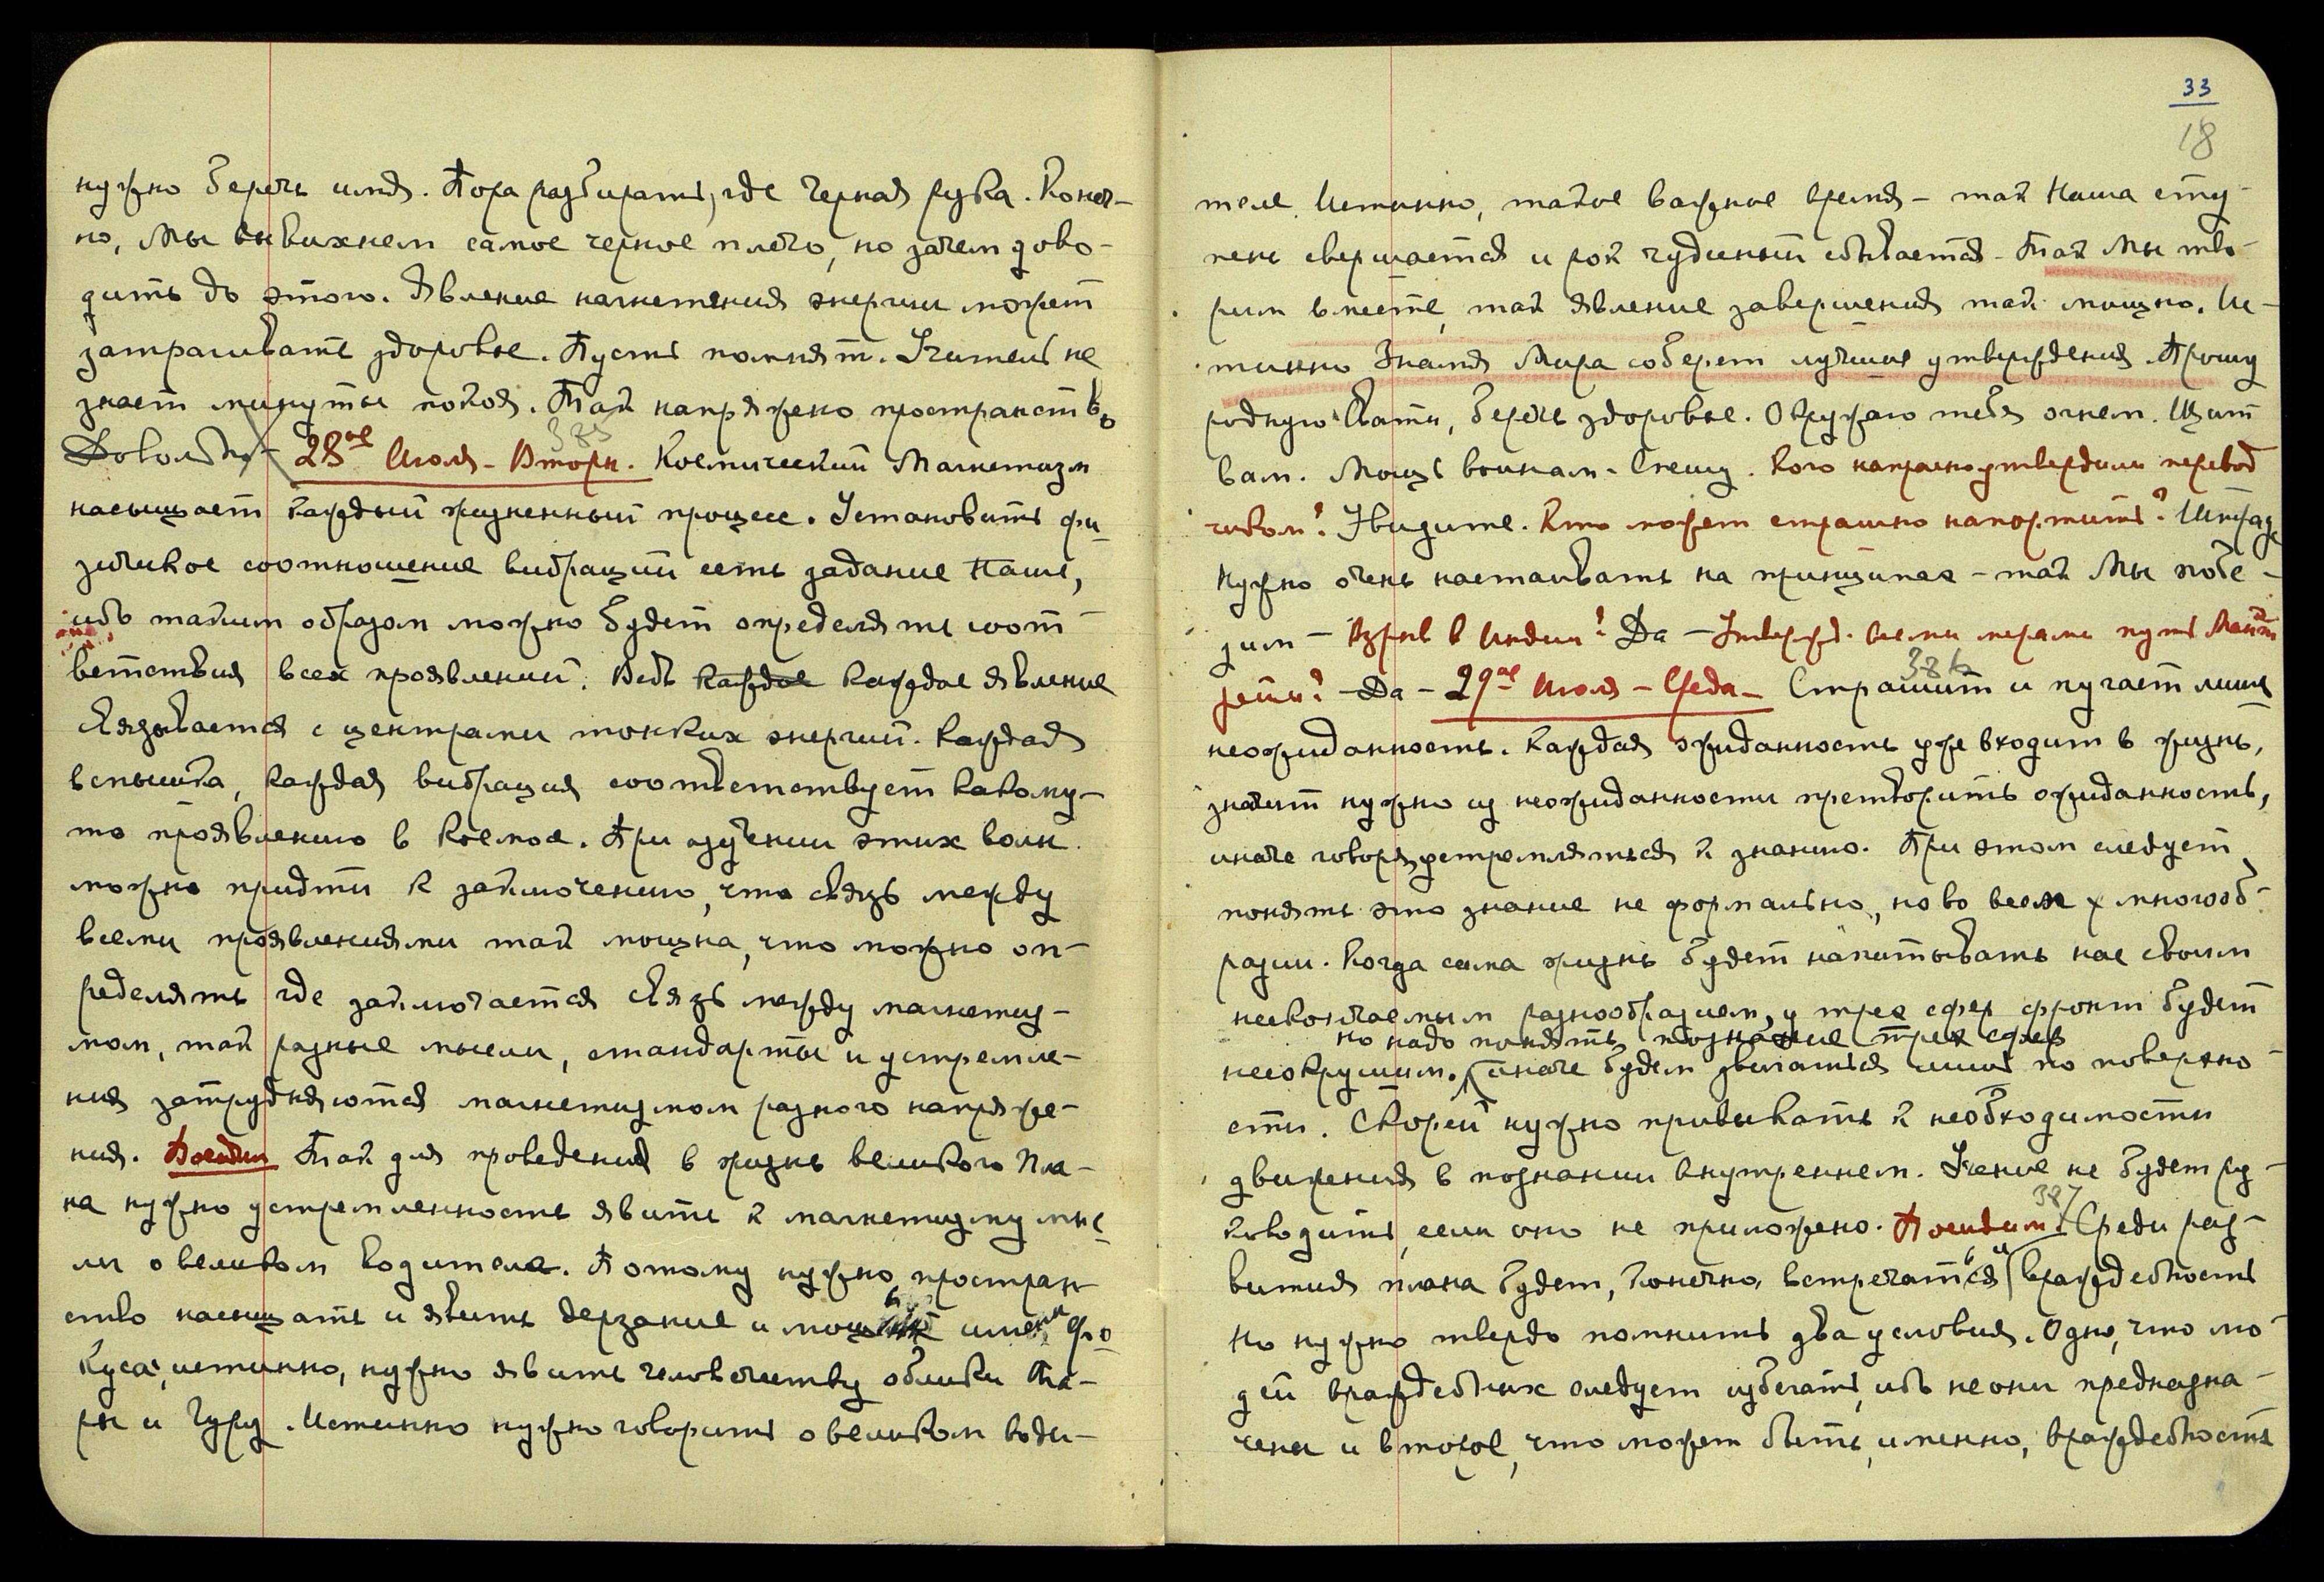 нужно беречь имя. Пора разбирать, где черная рука. Конеч-
но, Мы вывихнем самое черное плечо, но зачем дово-
дить до этого. Явление нагнетения энергии может
затрагивать здоровье. Пусть помнят. Учитель не
знает минуты покоя. Так напряжено пространство
Довольно - 28ое Июля - Вторн. Космический Магнетизм
385
насыщает каждый жизненный процесс. Установить фи-
зическое соотношение вибраций есть задание Наше,
ибо таким образом можно будет определять соот-
ветствия всех проявлений. Ведь каждое каждое явление
связывается с центрами тонких энергий. Каждая
вспышка, каждая вибрация соответствует какому-
то проявлению в Космосе. При изучении этих волн
можно придти к заключению, что связь между
всеми проявлениями так мощна, что можно оп-
ределять где заключается связь между магнетиз-
мом, так разные мысли, стандарты и устремле-
ния затрудняются магнетизмом разного напряже-
ния. Поседим Так для проведения в жизнь великого Пла-
на нужно устремленность явить к магнетизму мыс
ли о великом Водителе. Потому нужно простран
ство насыщать и явить дерзание и мощь имени Фо
куса, истинно, нужно явить человечеству облики Та-
ры и Гуру. Истинно нужно говорить о великом води-
33
18
теле. Истинно, такое важное время - так Наша сту-
пень свершается и рок чудесный сбывается - Так Мы тво-
рим вместе, так явление завершения так мощно. Ис-
тинно Знамя Мира соберет лучшие утверждения. Прошу
родную Свати, беречь здоровье. Окружаю тебя огнем. Щит
вам. Мощь воинам. Спешу. Кого напрасно утвердили перевод
чиком? Увидите. Кто может страшно напортить?
Нужно очень настаивать на принципах - так Мы побе-
дим - Взрыв в Индии? Да - Утвержд. всеми мерами путь Майт
рейи? - Да - 29ое Июля - Среда - Страшит и пугает лишь
386
неожиданность. Каждая жданность уже входит в жизнь,
значит нужно из неожиданности претворить ожиданность,
иначе говоря, устремляться к знанию. При этом следует
понять это знание не формально, но во всем многооб-
разии. Когда сама жизнь будет напитывать нас своим
нескончаемым разнообразием, у трех сфер фронт будет
но надо понять познание трех сфер
несокрушим. иначе будем двигаться лишь по поверхно-
сти. Скорей нужно привыкать к необходимости
движения в познании внутреннем. Учение не будет ру-
ководить, если оно не приложено. Поседим. Среди раз-
387
вития плана будет, конечно, встречаться враждебность
но нужно твердо помнить два условия. Одно, что лю-
дей враждебных следует избегать, ибо не они предназна-
чены и второе, что может быть, именно, враждебность